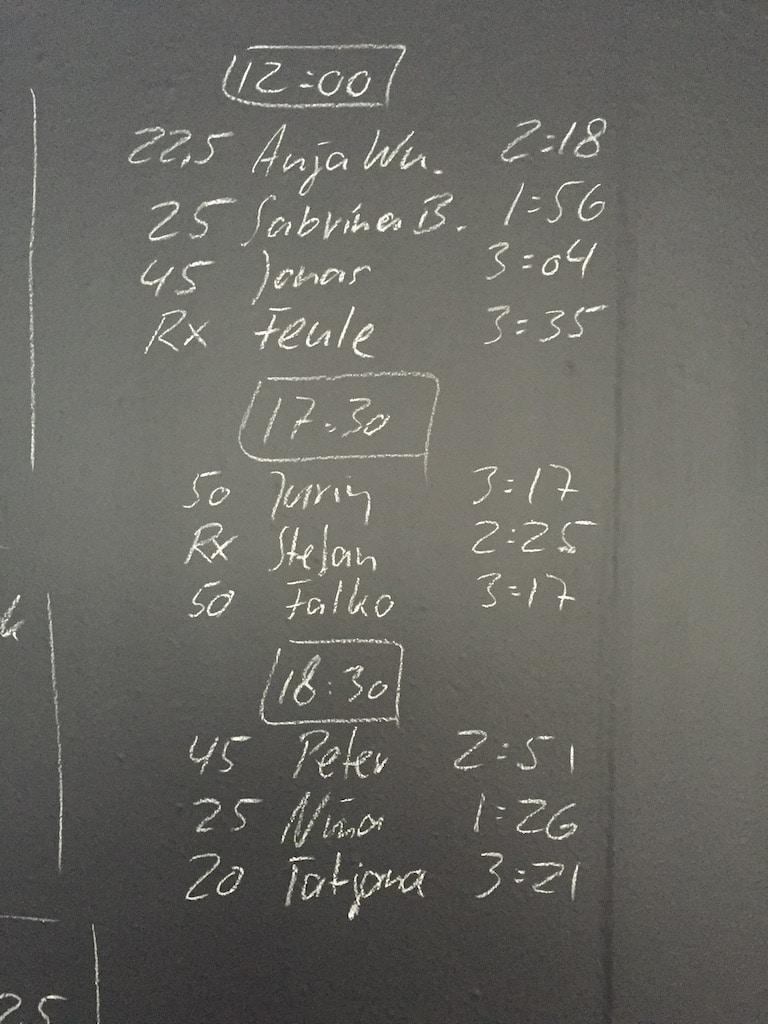 12:00
22,5 Anja Wu. 2:18
25 Sabrina B. 1:56
45 Jonas 3:04
Rx Feule 3:35
17:30
50 3:17
Rx Stefan 2:25
50 Falko 3:17
18:30
45 Peter 2:51
25 Nina 1:26
20 Tatjana 3:21
25